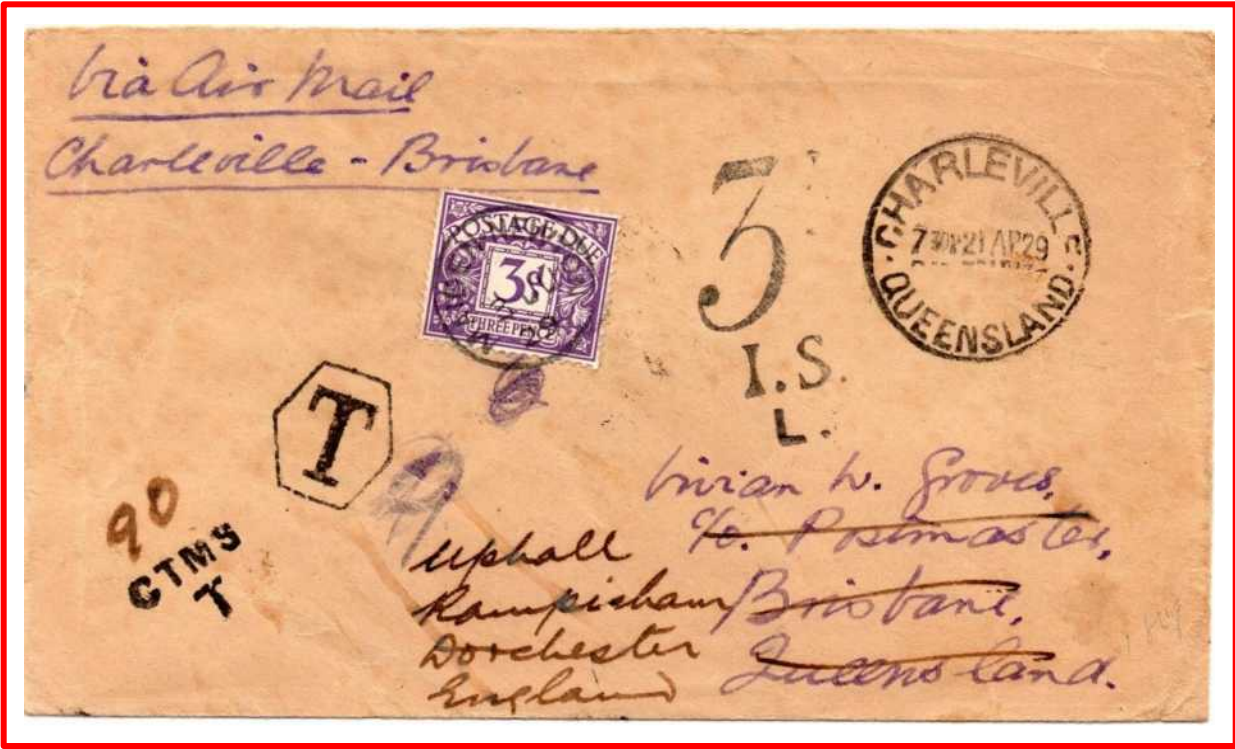 Via Air Mail
Charleville - Brisbane
POSTAGE DUE
3D
THREE PENCE
3
I.S.
L.
CHARLEVILLE
21 AP 29
QUEENSLAND
T
90
CTMS
T
Vivian W. Groves,
c/o. Postmaster,
Brisbane,
Queensland.
Uphall
Rampisham
Dorchester
England